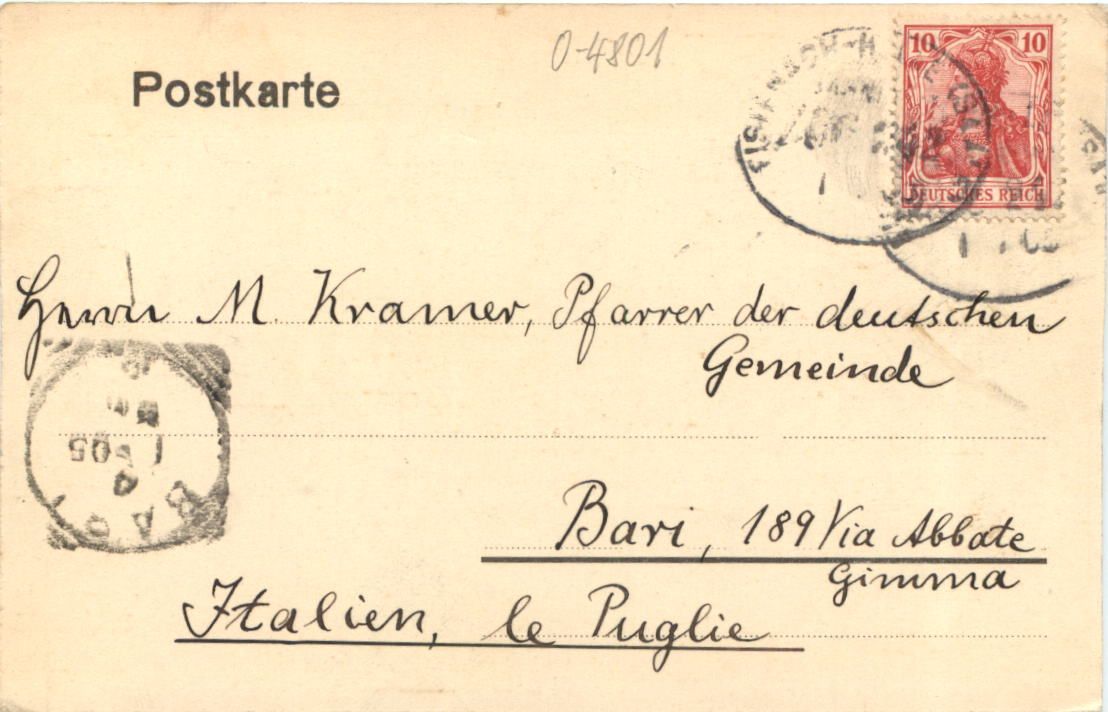 0-4801
Postkarte
10 10
DEUTSCHES REICH
Herrn M. Kramer, Pfarrer der deutschen
Gemeinde
BARI
4
05
Bari, 189 Via Abbate
Gimma
Italien, le Puglie